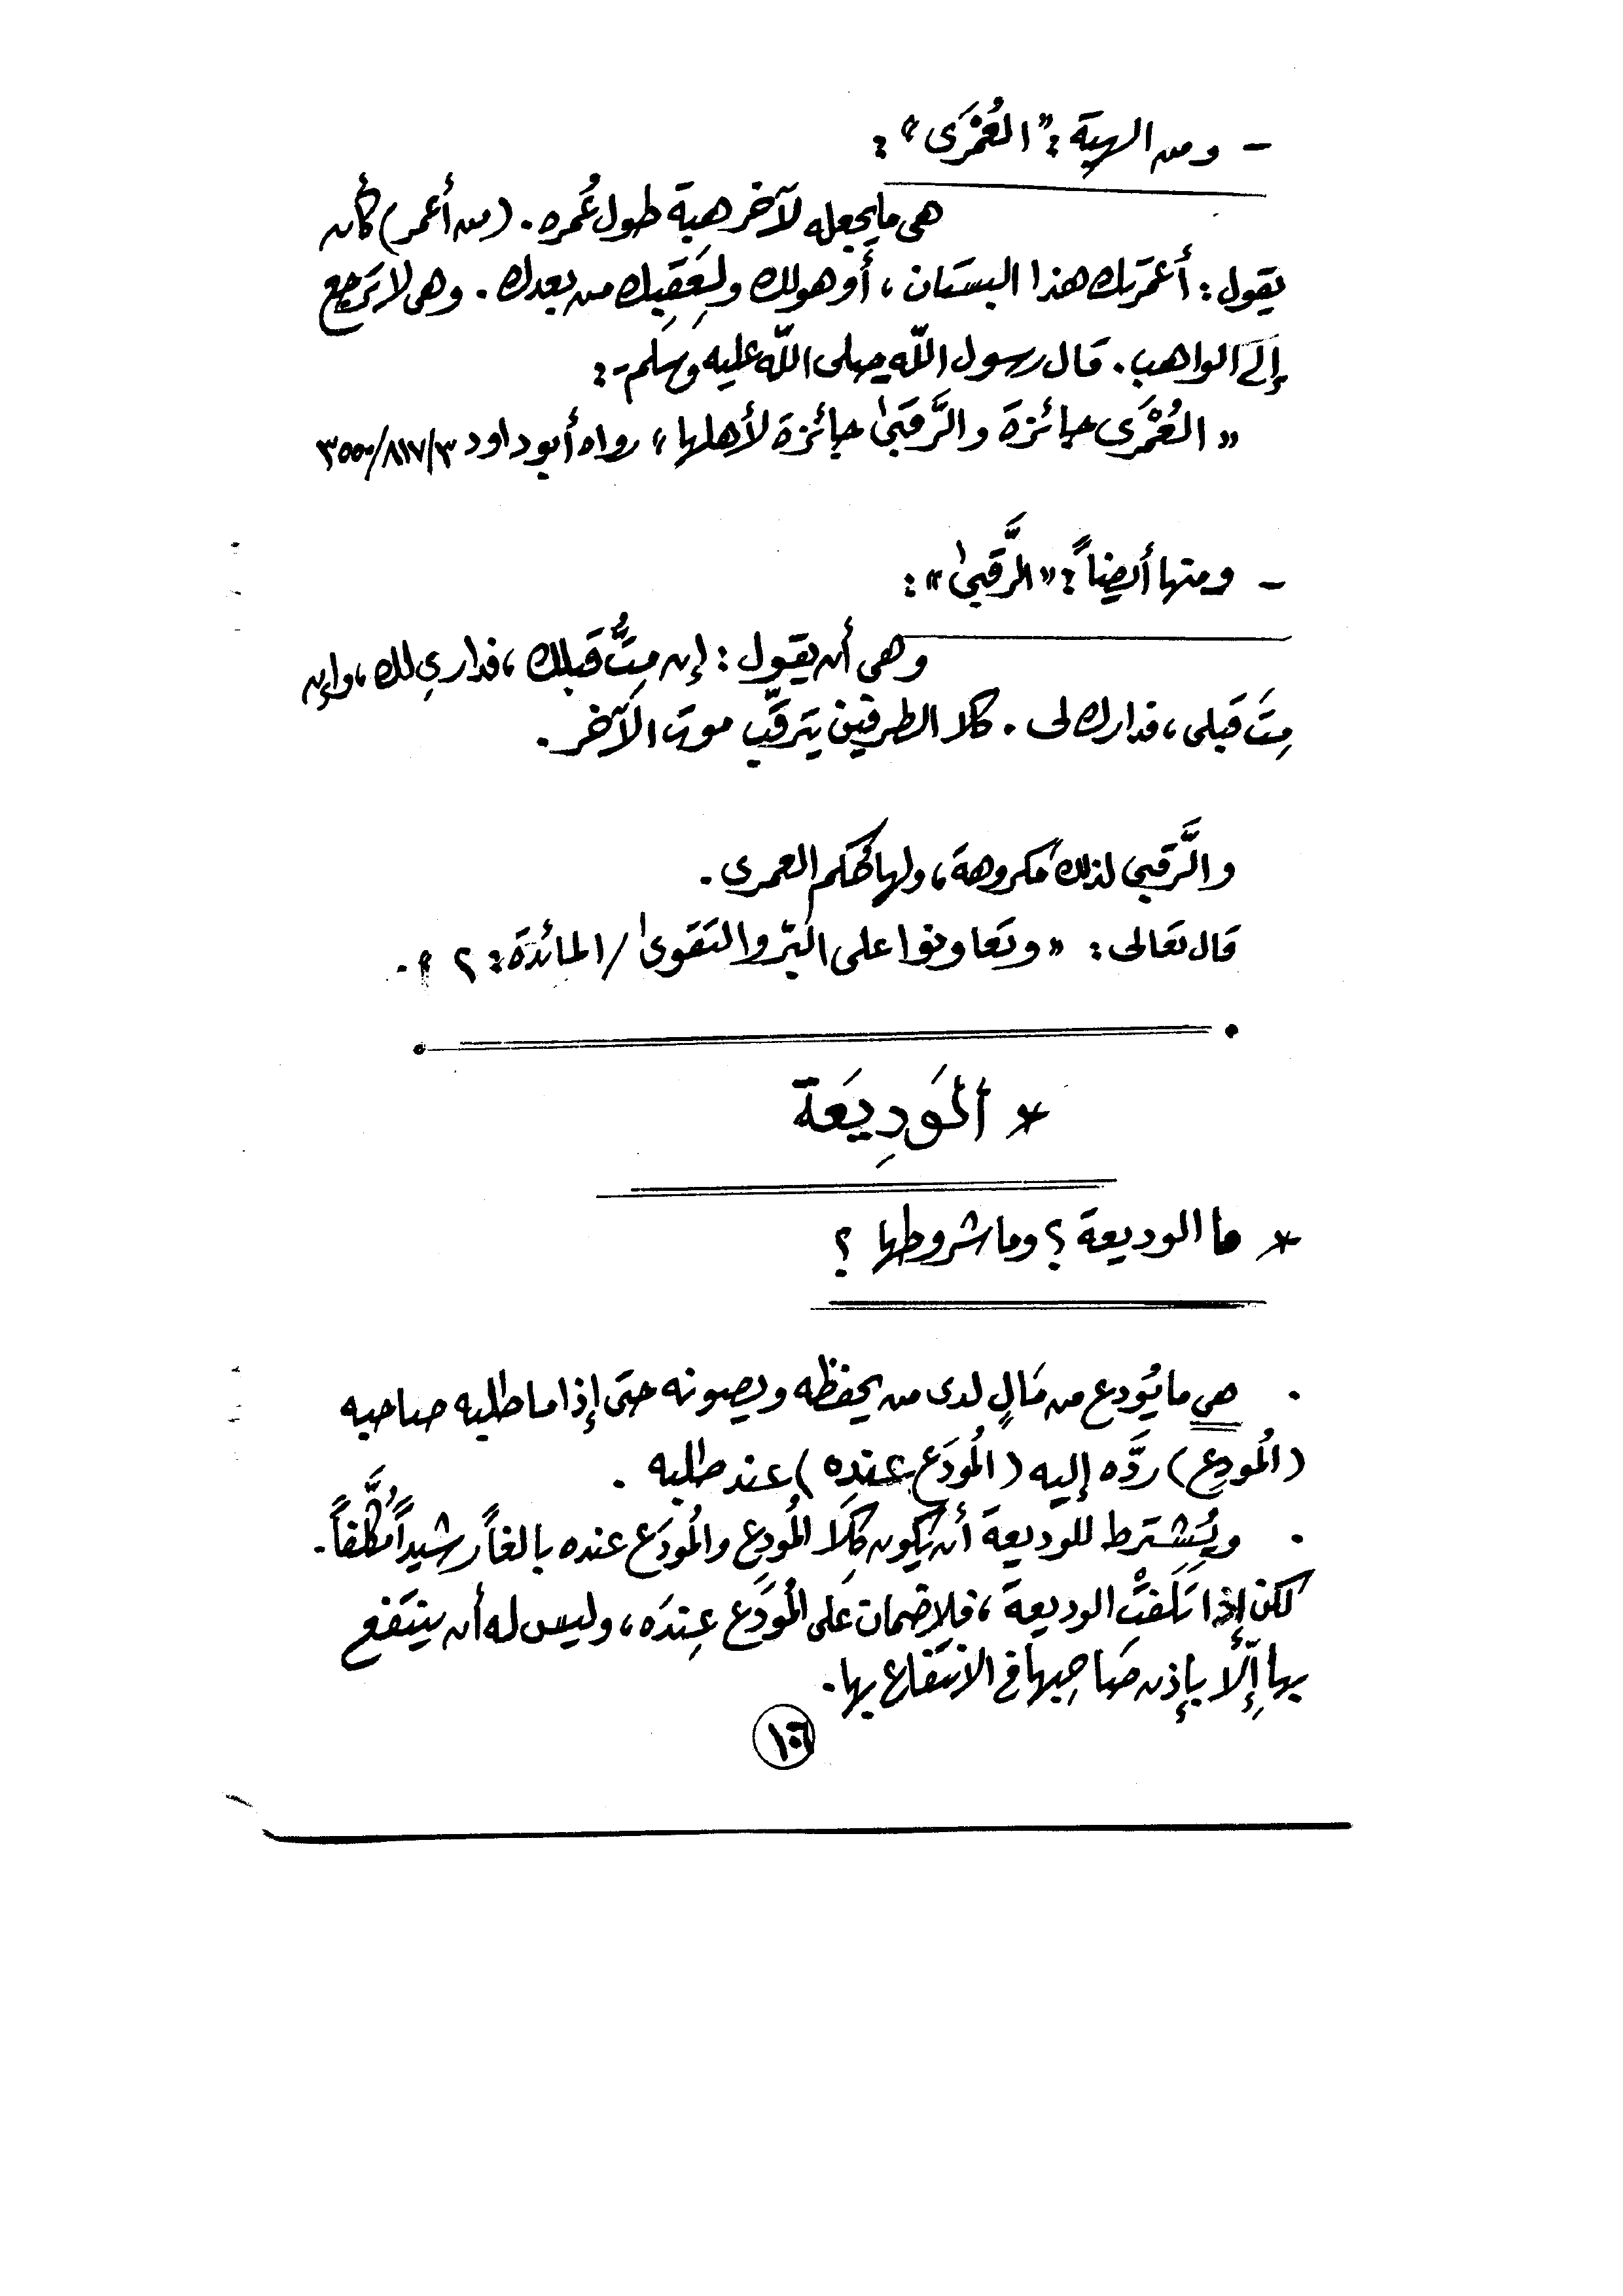 - ومن الهبة: "العُمْرَى":
هي ما يجعله لآخر هبة طول عُمره. (من أعمر) كأن
يقول: أعمرتك هذا البستان، أو هو لك ولِعَقِبِك من بعدك. وهي لا ترجع
إلى الواهب. قال رسول اللّه صلى اللّه عليه وسلم -:
« العُمْرَى جائزة والرَّقبىٰ جائزة لأهلها » رواه أبو داود ٣/٨١٧/٣٥٥٠
- ومنها أيضاً: «الرَّقبىٰ»:
وهي أن يقول: إن مِتُّ قبلك، فداري لك، وإن
مِتَ قبلي، فدارك لي. كلا الطرفين يترقّب موت الآخر.
والرَّقبى لذلك مكروهة، ولها حُكم العمرى.
قال تعالى: « وتعاونوا على البرّ والتقوىٰ / المائدة: ٢ ».
* ألوَدِيَعَة
* ما الوديعة؟ وما شروطها؟
. هي ما يُودع من مَالٍ لدى من يحفظه ويصونه حتى إذا ما طلبه صاحبه
(المُودِع) ردَّه إليه (المُودَع عندِه) عند طلبه.
. ويُشترط للوديعة أن يكون كِلَا المُودِع والمُودَع عنده بالغاً رشيداً مُكلَّفاً.
لكن إذا تَلَفتْ الوديعة، فلا ضمان عَلى المُودَع عِندَه، وليس له أن ينتفع
بها إلّا بإذن صَاحِبها في الانتفاع بها.
١٠٦